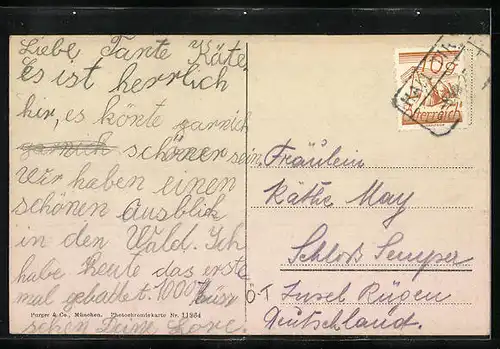 Liebe Tante Käte
Es ist herrlich
hir, es könte garnich
garnich schöner sein.
Wir haben einen
schönen Ausblick
in den Wald. Ich
habe heute das erste
mal gebattet. 1000
schen Deine Lore.
Purger & Co., München. Photochromiekarte Nr. 11264
Fräulein
Käthe May
Schloß Semper
O-T
Insel Rügen
Deutschland.